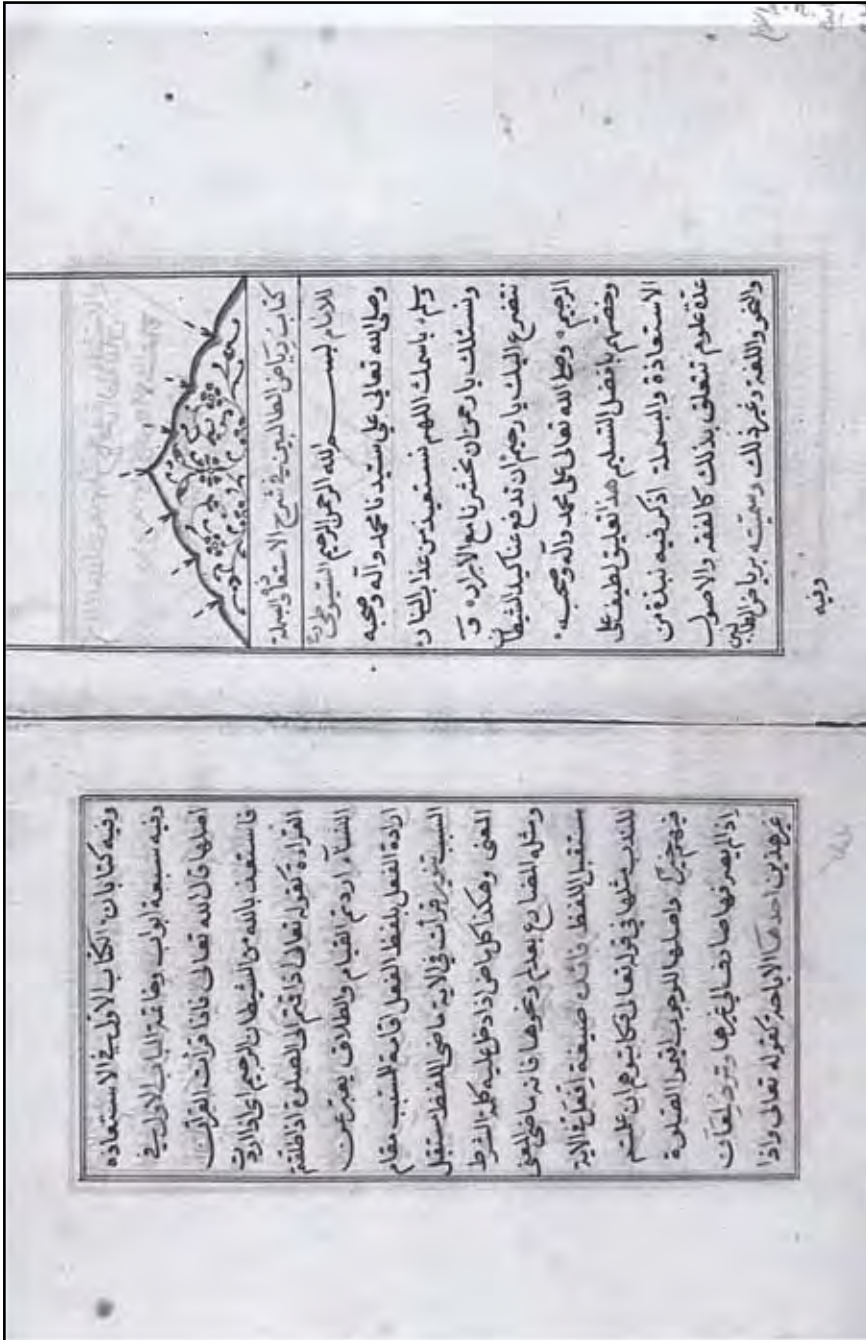 كتاب رياض الطالبين في شرح الاستعاذة والبسملة
للامام بسم الله الرحمن الرحيم السيوطي
وصلى الله تعالى على سيدنا محمد وآله وصحبه
وسلم، باسمك اللهم نستعيذ من عذاب النار
ونسئلك يا رحمن ان تحشرنا مع الابرار، و
نتضرع اليك يا رحيم ان تدفع عنا كيد الشيطان
الرجيم، وصلى الله تعالى على محمد وآله وصحبه،
وخصهم بافضل التسليم هذا تعليق لطيف على
الاستعاذة والبسملة اذكر فيه نبذة من
عدة علوم تتعلق بذلك كالفقه والاصول
والنحو واللغة وغير ذلك وسميته برياض الطالبين
وفيه
وفيه كتابان، الكتاب الاول في الاستعاذه
وفيه سبعة ابواب وخاتمة الباب الاول في
اصلها قال الله تعالى فاذا قرأت القرآن
فاستعذ بالله من الشيطان الرجيم اى اذا اردت
القراءة كقوله تعالى اذا قمتم الى الصلوة اذا طلقتم
النساء اى اردتم القيام والطلاق يعبر عن
ارادة الفعل بلفظ الفعل اقامة للمسبب مقام
السبب تنوير قرأت في الآية ماضى اللفظ مستقبل
المعنى وهكذا كل ماض اذا دخل عليه كلمة الشرط
ومثله المضارع بعد لم ونحوها فانه ماضى المعنى
مستقبل اللفظ صيغة افعل في الآية
للندب مثلها في قوله تعالى فكاتبوهم ان علمتم
فيهم خيرا واصلها للوجوب اقيموا الصلوة
اذا لم يصرفها صارف الى غيرها وترد لمعان
غير هذين احدها الاباحة كقوله تعالى واذا